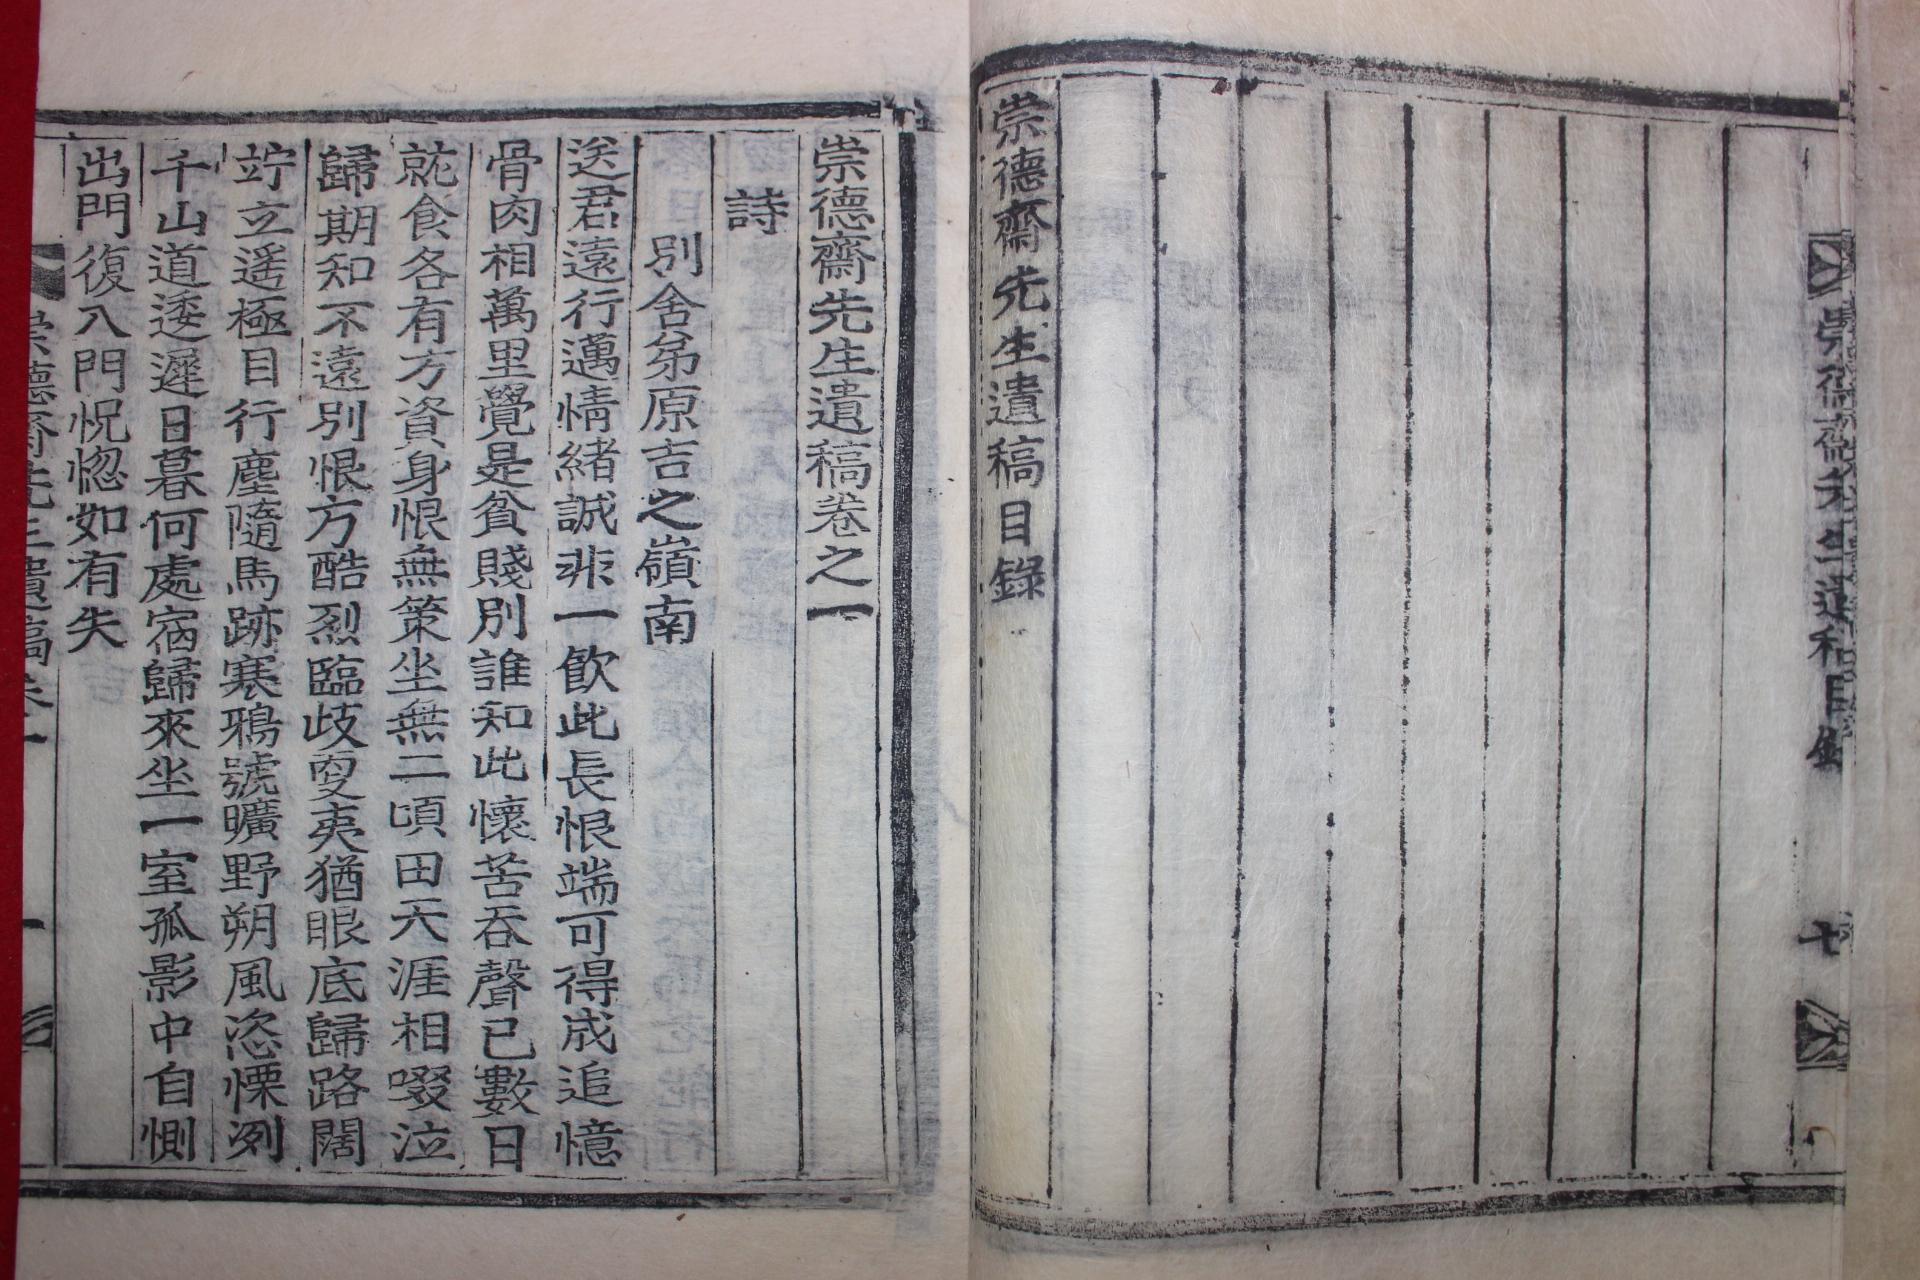 崇德齋先生遺稿目錄
七
崇德齋先生遺稿目錄
崇德齋先生遺稿卷之一
詩
別舍弟原吉之嶺南
送君遠行邁情緒誠非一飮此長恨端可得成追憶
骨肉相萬里覺是貧賤別誰知此懷苦吞聲已數日
就食各有方資身恨無策坐無二頃田天涯相啜泣
歸期知不遠別恨方酷烈臨歧更夷猶眼底歸路闊
竚立遥極目行塵隨馬跡寒鴉號曠野朔風恣慄冽
千山道逶遲日暮何處宿歸來坐一室孤影中自惻
出門復入門怳惚如有失
崇德齋先生遺稿卷一
一